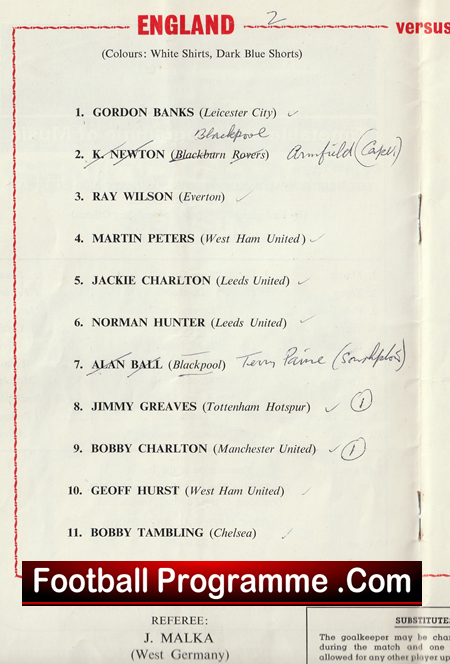 ENGLAND 2 versus
(Colours: White Shirts, Dark Blue Shorts)
1. GORDON BANKS (Leicester City) ✓
Blackpool
2. K. NEWTON (Blackburn Rovers) Armfield (Capt.)
3. RAY WILSON (Everton) ✓
4. MARTIN PETERS (West Ham United) ✓
5. JACKIE CHARLTON (Leeds United) ✓
6. NORMAN HUNTER (Leeds United) ✓
7. ALAN BALL (Blackpool) Terry Paine
8. JIMMY GREAVES (Tottenham Hotspur) ✓ 1
9. BOBBY CHARLTON (Manchester United) ✓ 1
10. GEOFF HURST (West Ham United) ✓
11. BOBBY TAMBLING (Chelsea) ✓
Football Programme .Com
REFEREE:
J. MALKA
(West Germany)
SUBSTITUTE
The goalkeeper may be cha
during the match and one
allowed for any other player up